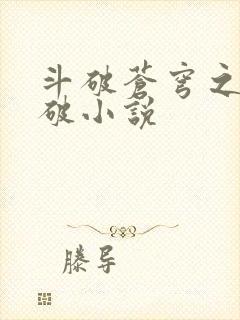 斗破蒼穹之
破小說
滕导